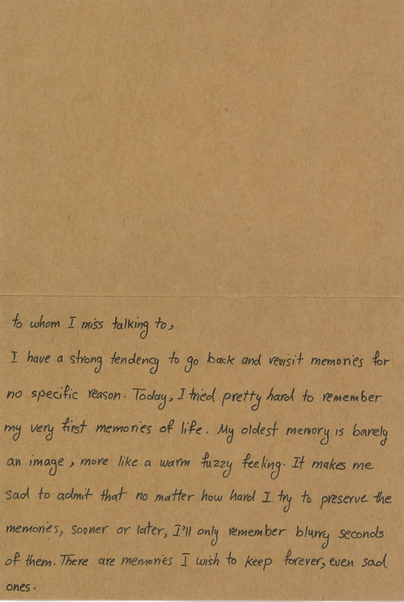 to whom I miss talking to,
I have a strong tendency to go back and revisit memories for
no specific reason. Today, I tried pretty hard to remember
my very first memories of life. My oldest memory is barely
an image, more like a warm fuzzy feeling. It makes me
sad to admit that no matter how hard I try to preserve the
memories, sooner or later, I'll only remember blurry seconds
of them. There are memories I wish to keep forever, even sad
ones.